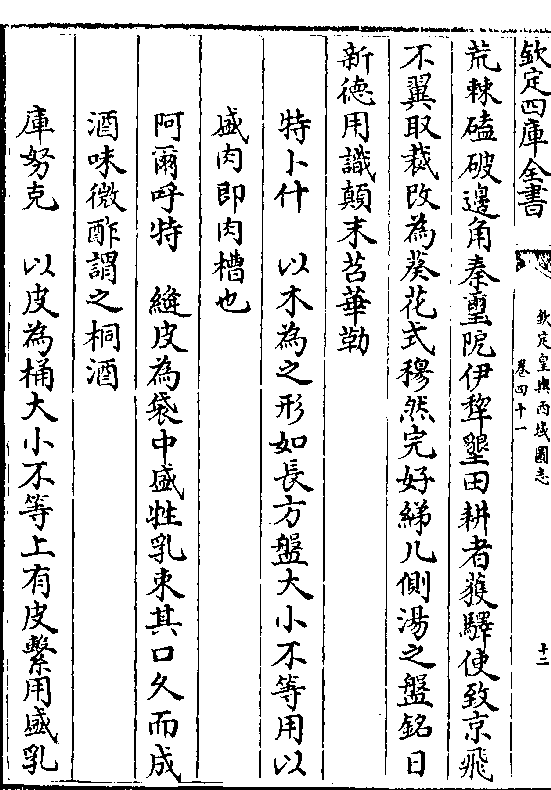 欽定四庫全書
欽定皇輿西域圖志
卷四十一
十二
荒棘磕破邊角秦璽院伊犂墾田耕者獲驛使致京飛
不翼取裁改為葵花式穆然完好綈几側湯之盤銘日
新德用識顛末苕華勒
特卜什　以木為之形如長方盤大小不等用以
盛肉即肉槽也
阿爾呼特　縫皮為袋中盛牲乳束其口久而成
酒味微酢謂之桐酒
庫努克　以皮為桶大小不等上有皮繫用盛乳